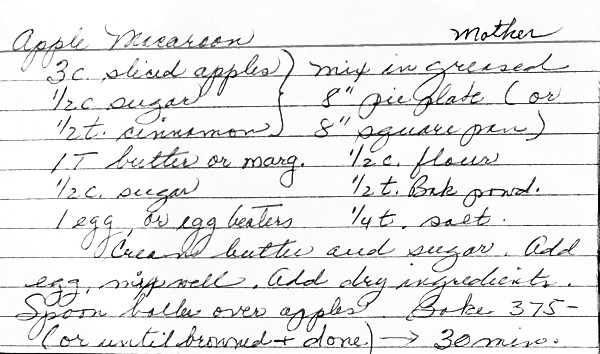 Apple Macaroon Mother
3 c. sliced apples } mix in greased
1/2 c. sugar } 8" pie plate (or
1/2 t. cinnamon } 8" square pan)
1 T butter or marg. 1/2 c. flour
1/2 c. sugar 1/2 t. Bak powd.
1 egg, or egg beaters 1/4 t. salt.
Cream butter and sugar. Add
egg, mix well. Add dry ingredients.
Spoon over apples. Bake 375-
(or until browned + done) → 30 min.